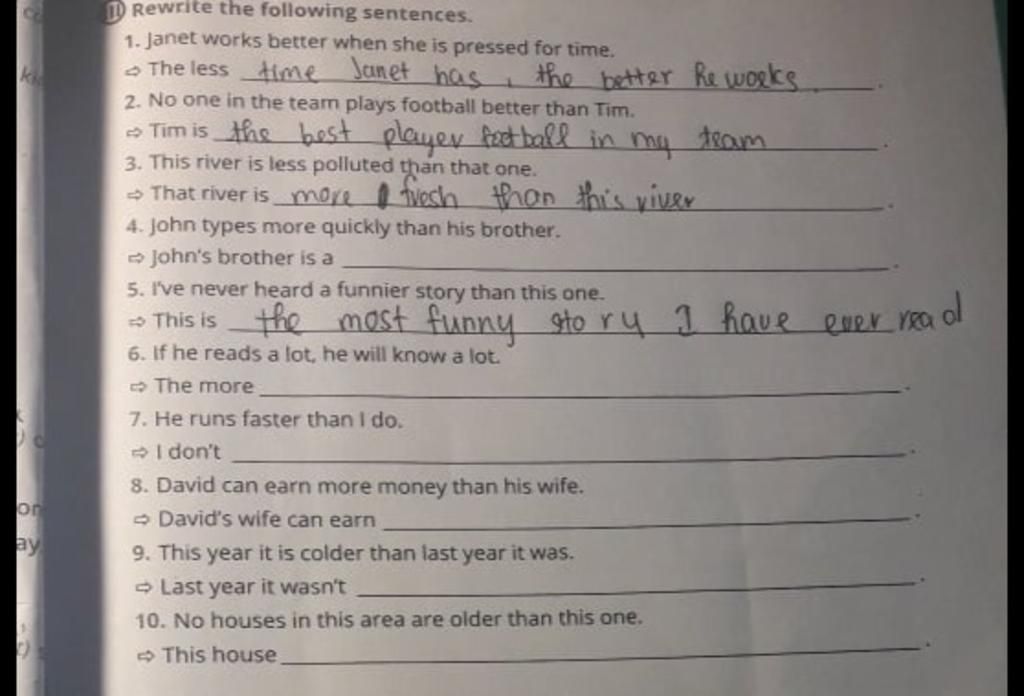 11 Rewrite the following sentences.
1. Janet works better when she is pressed for time.
⇨ The less time Janet has, the better he works.
2. No one in the team plays football better than Tim.
⇨ Tim is the best player football in my team.
3. This river is less polluted than that one.
⇨ That river is more fresh than this river.
4. John types more quickly than his brother.
⇨ John's brother is a ____.
5. I've never heard a funnier story than this one.
⇨ This is the most funny story I have ever read
6. If he reads a lot, he will know a lot.
⇨ The more ____.
7. He runs faster than I do.
⇨ I don't ____.
8. David can earn more money than his wife.
⇨ David's wife can earn ____.
9. This year it is colder than last year it was.
⇨ Last year it wasn't ____.
10. No houses in this area are older than this one.
⇨ This house ____.
on
ay